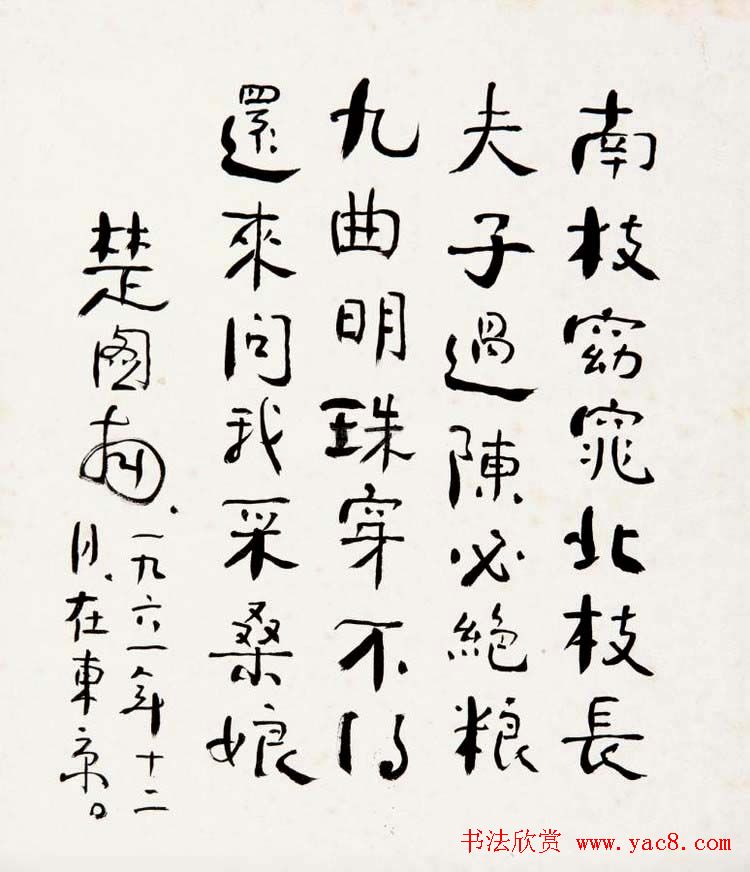 南枝窈窕北枝長
夫子過陳必絶粮
九曲明珠穿不得
還來問我采桑娘
楚圖南、
一九六一年十二
月、在東京。
书法欣赏 www.yac8.com